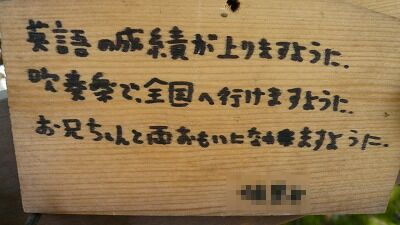 英語の成績が上りますように.
吹奏楽で、全国へ行けますように.
お兄ちゃんと両おもいになれますように.